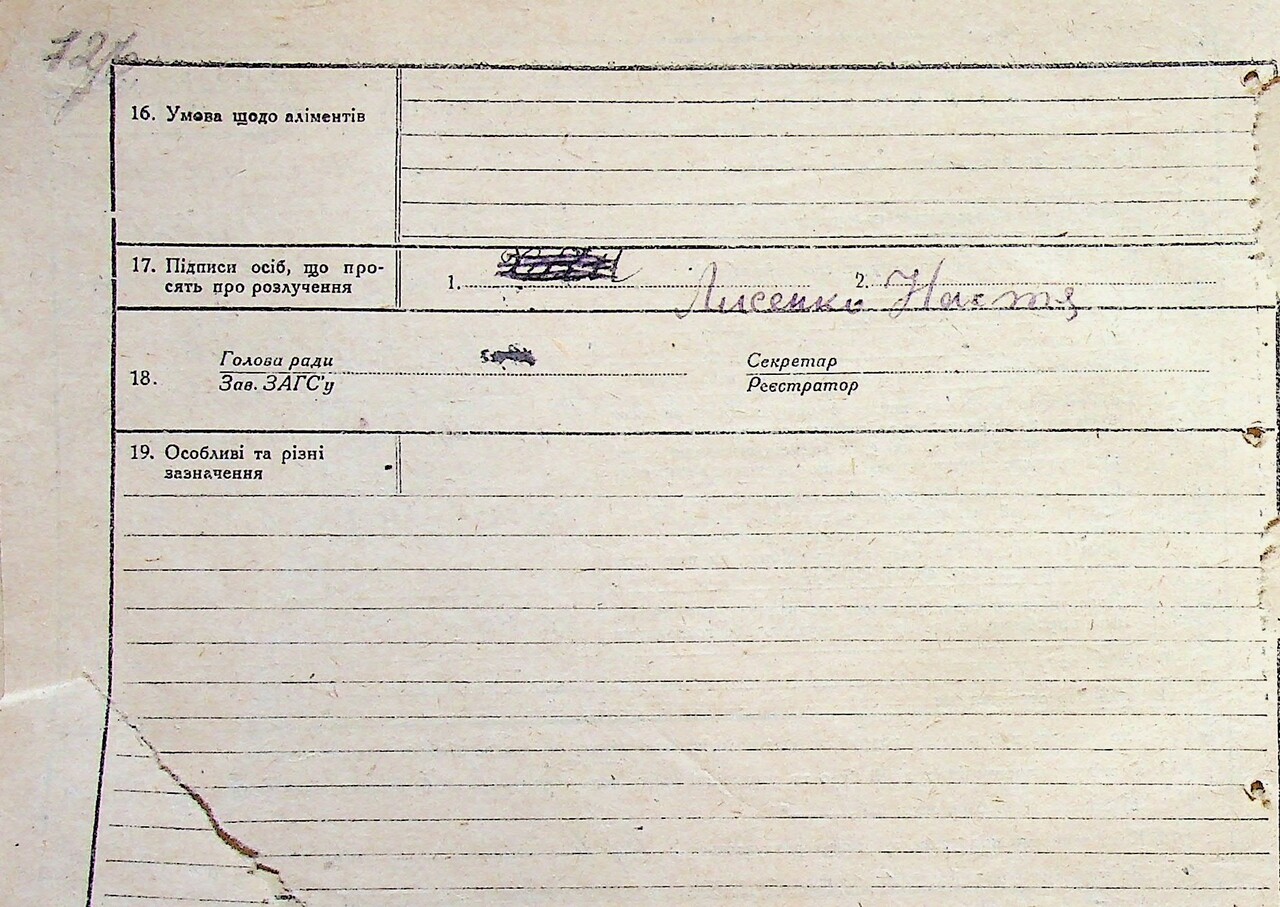 16. Умова щодо аліментів
17. Підписи осіб, що про-
сять про розлучення
1. 2.
Лисенко Настя
18.
Голова ради
Зав. ЗАГС'у
Секретар
Реєстратор
19. Особливі та різні
зазначення